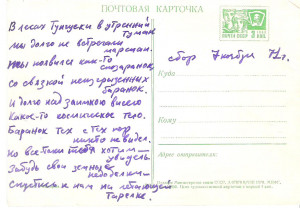 ПОЧТОВАЯ КАРТОЧКА
В лесах Тунгуски в утренний
туман
Мы долго не встречали
марсиан.
Мы появился как-то
спозаранок,
Со связкой неизгрызенных
баранок.
И долго над заимкою висело
Какое-то космическое тело.
Баранок тех с тех пор
никто не видел.
Но все-таки хотим
увидеть.
Забудь свои земные
недоделки
Спустись к нам на летающей
тарелке.
сбор 7 ноября 72 г.
Куда
Кому
Адрес отправителя: